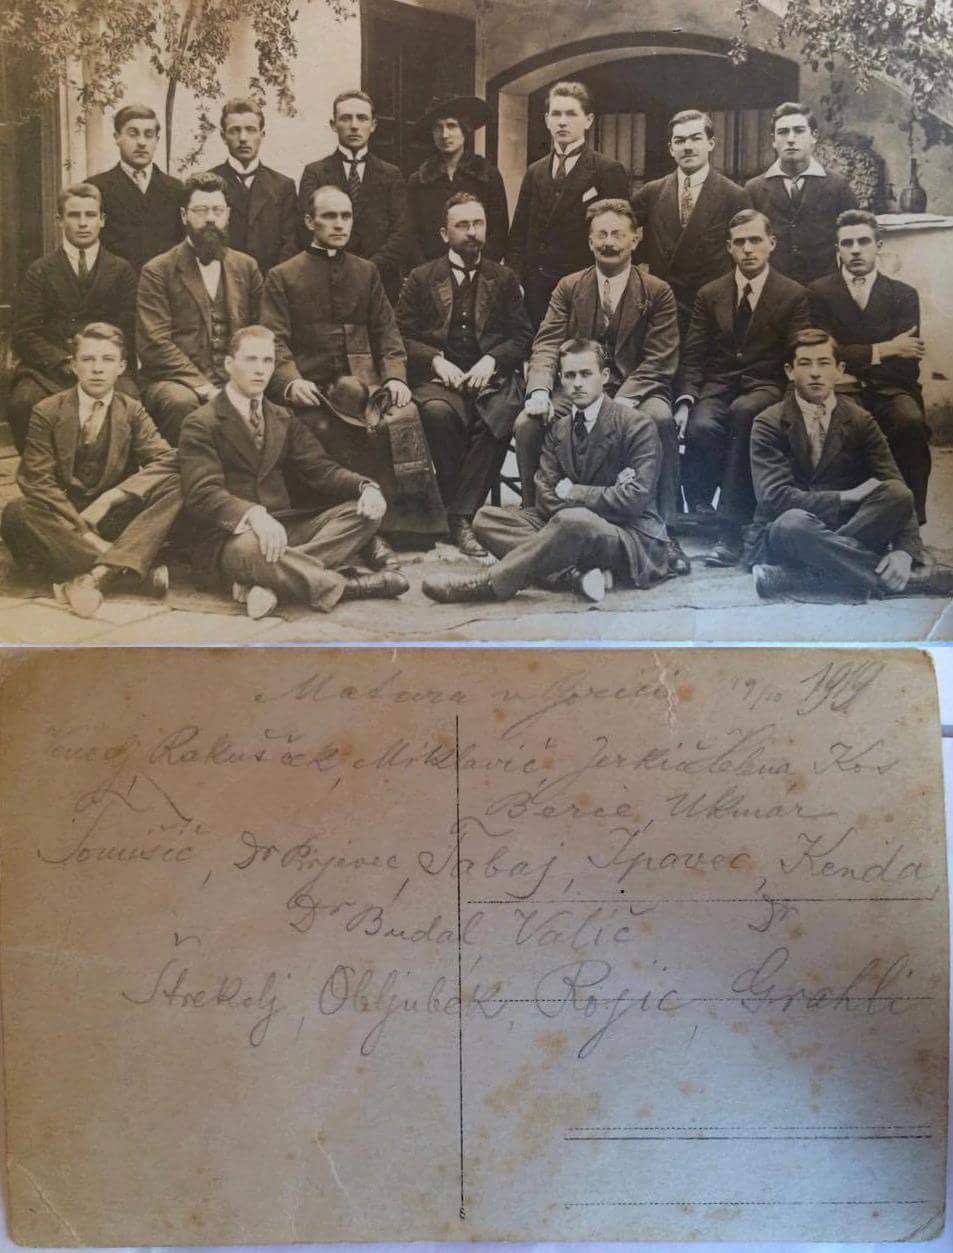 Matura v Gorici 19/10 1919
Rakušček, Miklavič, Jerkič Helena Kos
Bercè, Ukmar
Tomušič, Dr Prijevec, Tabaj, Ipavec, Kenda,
Dr Budal, Valič Dr
Štrekelj, Obljubek, Rojic, Grahli